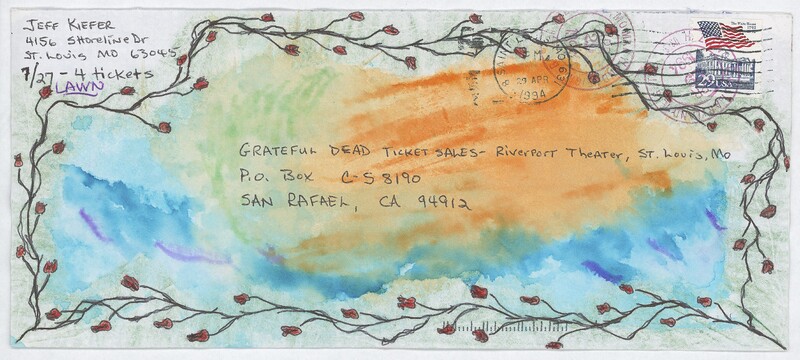 JEFF KIEFER
4156 Shoreline Dr
St. Louis MO 63045
7/27 - 4 tickets
LAWN
GRATEFUL DEAD TICKET SALES- Riverport Theater, St. Louis, Mo
P.O. Box C-S 8190
SAN RAFAEL, CA 94912
29 APR
1994
29 USA